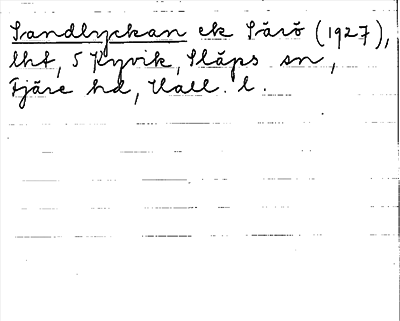 Sandlyckan ek Särö (1927),
lht, S Kyvik, Släps sn,
Fjäre hd, Hall. l.